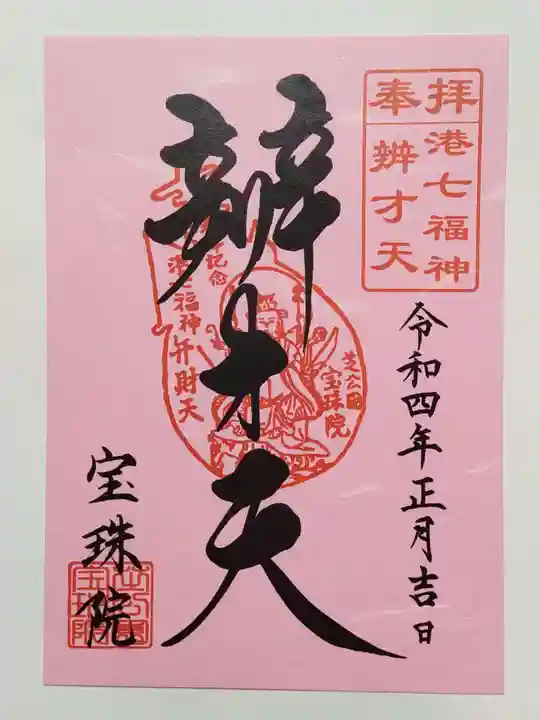 奉拝
港七福神
辨才天
令和四年正月吉日
辨才天
記念
港七福神弁財天
芝公園
宝珠院
宝珠院
芝公園
宝珠院